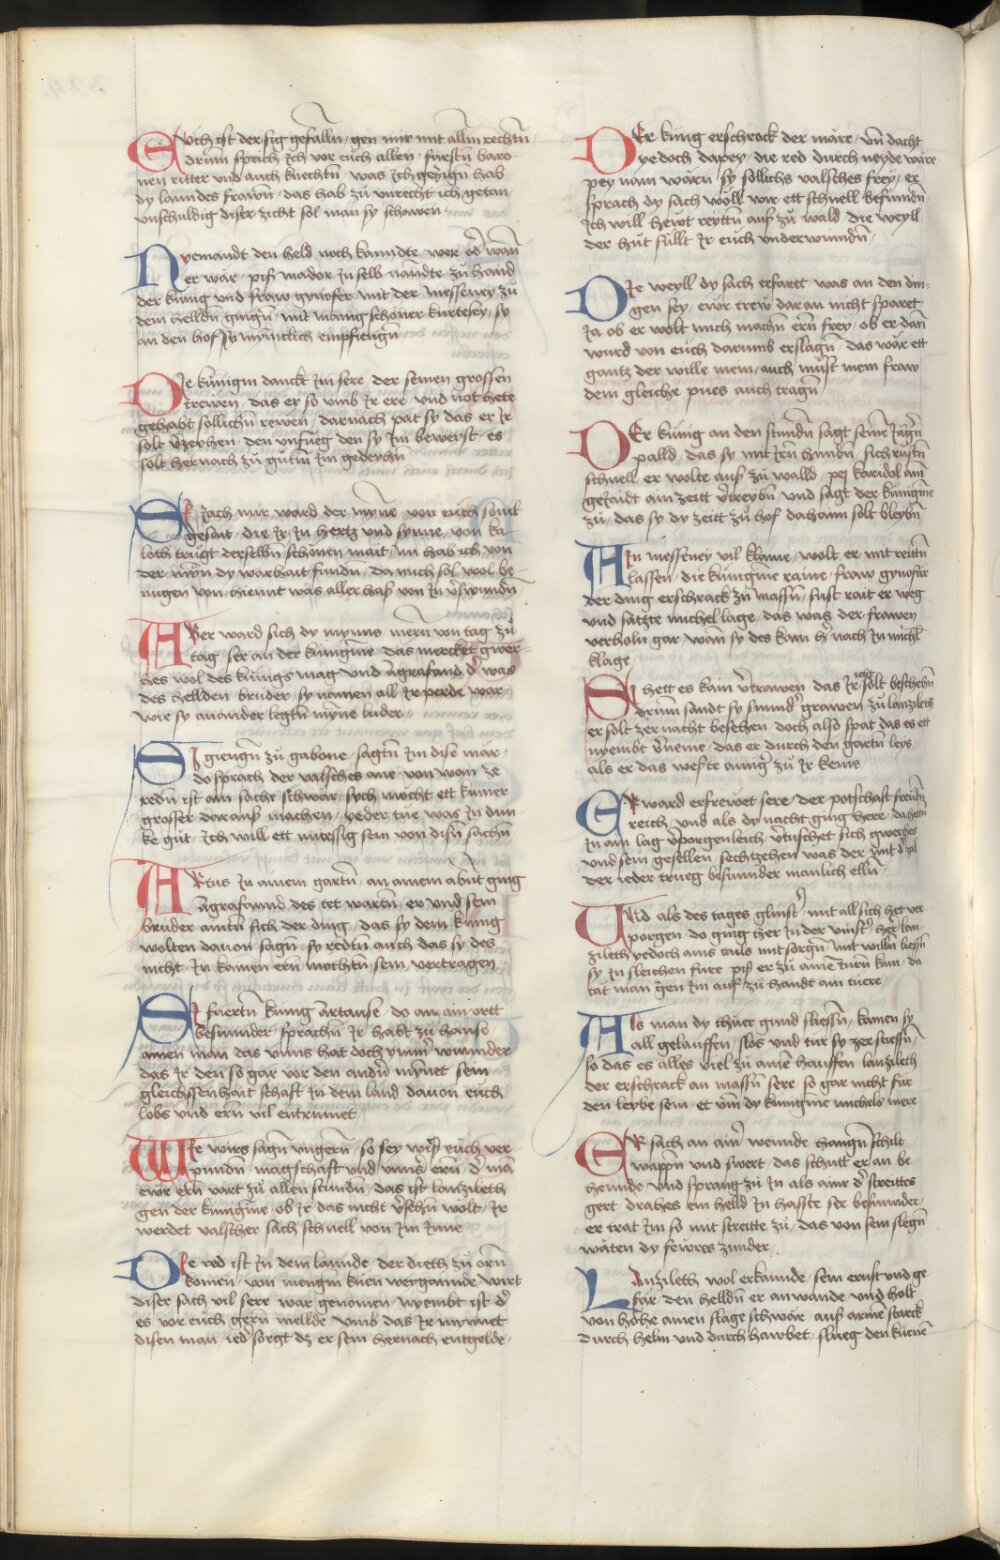 Euch ist der sig gefalln / gen mir mit allen rechtn
drum sprich ich vor euch allen / fursten baro-
nen ritter und auch knechtn / was ich gezigen hab
dy lanndes frawen / das hab zu unrecht ich getan
unschuldig diser zicht sol man sy schawen
Nyemandt den held noch kanndte / wer od wan
er war / pis mador in selb nandte zu hand
der kunig und fraw gynofer mit der messeney zu
dem helldn gingen / mit manig schoner kurtesey / sy
an den hof sy mynniclich empfiengn
Die kunigin danckt im sere der seinen grossen
trewen / das er so umb ir ere und not hete
gehabt sollichen rewen / darnach pat sy das er ir
solt verzeyhen den unfueg den sy im beweyst / es
solt hernach zu gutem im gedeyhn
Si jach mir ward der myne / von euch sovil
gesait / die ir in hertz und synne / von ka-
loth traget derselbn schonen mait / nu hab ich von
der mern dy warhait fundn / da mich sol wol be-
nugen von / hiemit was aller has von in verswundn
Aber ward sich dy mynns mern von tag zu
tag / ser an der kunigine / das mercket gwer-
hes wol des kunigs mag / und agrafand der was
des hellden bruder / sy namen all ir perde war
wie sy anander legten myne luder
Si giengn zu gabone / sagtn im dise mar
do sprach der valsches ane von wem ze
redn ist ain sache schwar / sych mocht ett kumer
grosser daraus machen / yeder tue was in dun-
ke gut / ich will ett muessig sein von disen sachn
Artus in ainem gartn / an ainem abent ging
agrafannd des tet wartn / er und sein
bruder aintn sich der ding / das sy dem kunig
wolten davon sagn / sy redtn auch das sy des
nicht in kainen ern mochtn sein vertragen
Si fuertn kunig artause / do an ain ortt
besunnder / sprachn ir habt zu hause
ainen man das unns hat doch ymmer wunnder
das ir den so gar vor den andn mynet / sein
gleichssenhait schaft in dem land davon euch
lobs und ern vil entrinnet
Wie wirs sagn ungern / so sey wirs euch ver-
pundn magschaft und unns ern / der ma
ewr ern vart zu allen stundn / das ist lanzileth
gen der kunigine / ob ir das nicht versehn wolt / ir
werdet valscher sach schnell von im inne
Die red ist in dem lannde der dieth zu orn
komen / von mengin kuen weygannde wirt
diser sach vil sere war genomen / nyembt ist der
es vor euch gern mellde / umb das ir mynnet
disen man / ied sorgt dz er sein hernach entgelde
Der kunig erschrack der mare / und dacht
yedoch dapey / die red durch neyde ware
pey nam warn sy sollichs valsches frey / er
sprach dy sach woll wir ett schnell befundn
ich will hewt reyttn auf zu wald die weyll
der hut sullt ir euch underwundn
Die weyll dy sach erfaret was an den din-
gen sey / ewr trew daran nicht sparet
Ja ob er wolt mich machn ern frey / ob er dan
wurd von euch darumb erslagn / das war ett
gantz der wille mein / auch muest mein fraw
dem gleiche pues auch tragn
Der kunig an den stundn sagt seinen jagern
palld / das sy mit irn hundn / sich rustn
schnell er wolte aus zu walld / pej karidol ain
gejaidt ain zeitt vertreybn / und sagt der kunigine
zu / das sy dy zeitt zu hof dahaim solt bleybn
Ain messeney vil klaine / wolt er mit reittn
lassen / die kunigine raine / fraw gynofar
der ding erschrack zu massn / sust rait er weg
und satzte michel lage / das was der frawen
verholn gar wan sy des kam her nach in michl
klage
Si hett es kaim vertrawen das ir icht solt beschehn
drum sandt sy sunnder grawen / zu lanzileth
er solt zer nacht besehen / doch also spat das es ett
nyembt verneme / das er durch den gartn leys
als er das weste ainig zu ir keme
Er ward erfrewet sere / der potschaft frewdn
reich / und als dy nacht ging here / dahaim
in ain lag verporgenleich / vertuschet sich gwerhes
und sein gesellen / sechtzehen was der zal
der ieder trueg besunnder manlich ellen
Und als des tages glinst / mit all sich het ver-
porgen / do ging her in der vinster / her lan-
zileth yedoch ains tails mit sorgn / mit willn liessn
sy in sleichen fure / pis er zu ainem turn kam / da
tat man gen im auf zu handt ain tuere
Als man dy thuer gund sliessn / kamen sy
all gelauffen / slos und tur sy zerstiessn
so das es alles viel zu aine hauffen / lanzileth
der erschrack an massn sere / so gar nicht fur
den leybe sein / et um dy kunigine michels mere
Er sach an ainer wennde hangn schilt
wappn und swert / das schutt er an be-
hennde / und sprang zu in als ainer der streittes
gert / draches ein helld in hasste ser besunnder
er trat im so mit streitte zu / das von sein slegn
wäten dy fewres zunder
Lanzileth wol erkannde / sein ernst und ge-
fär / den helldn er anwande / und holt
von hohe ainen slage schwar / aus arme starck
durch helm und durch hawbet / slueg den kuene